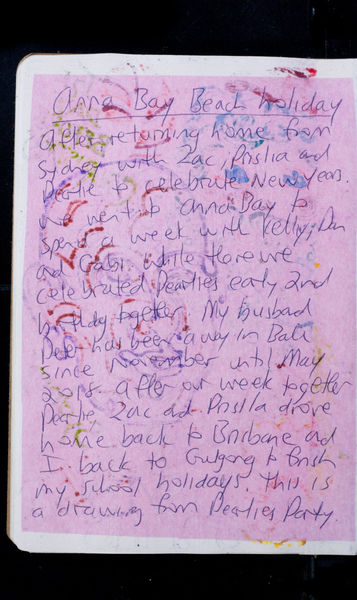 Anna Bay Beach holiday
After returning home from
Sydney with Zac, Prislla and
Pearlie to celebrate New Years.
we went to Anna Bay to
spend a week with Kelly, Dan
and Gabi while there we
celebrated Pearlies early 2nd
birthday together My husbad
Pete has been away in Bali
since November until May
2018. after our week together
Pearlie Zac ad Prislla drove
home back to Brisbane ad
I back to Gulgong to finish
my school holidays. This is
a drawing from Pearlies Party.